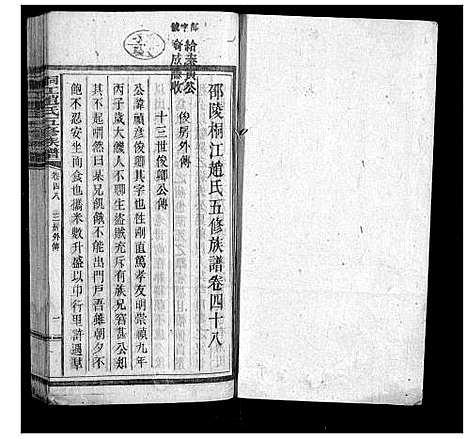 邵陵桐江趙氏五修族譜卷四十八
俊房外傳
十三世俊卿公傳
公諱禎彥俊卿其字也性剛直篤孝友明崇禎九年
丙子歲大饑人不聊生盜賊充斥有族兄窘甚公知
其不起喟然曰某兄飢餓不能出門戶吾雖朝夕不
飽不忍安坐而食也攜米數升盛以巾行里許遇羣
桐江趙氏五修族譜
卷四八
外傳
一
字號
給奉
公
收